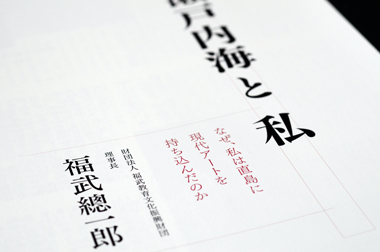 瀬戸内海と私
なぜ、私は直島に
現代アートを
持ち込んだのか
財団法人 福武教育文化振興財団
理事長
福武總一郎